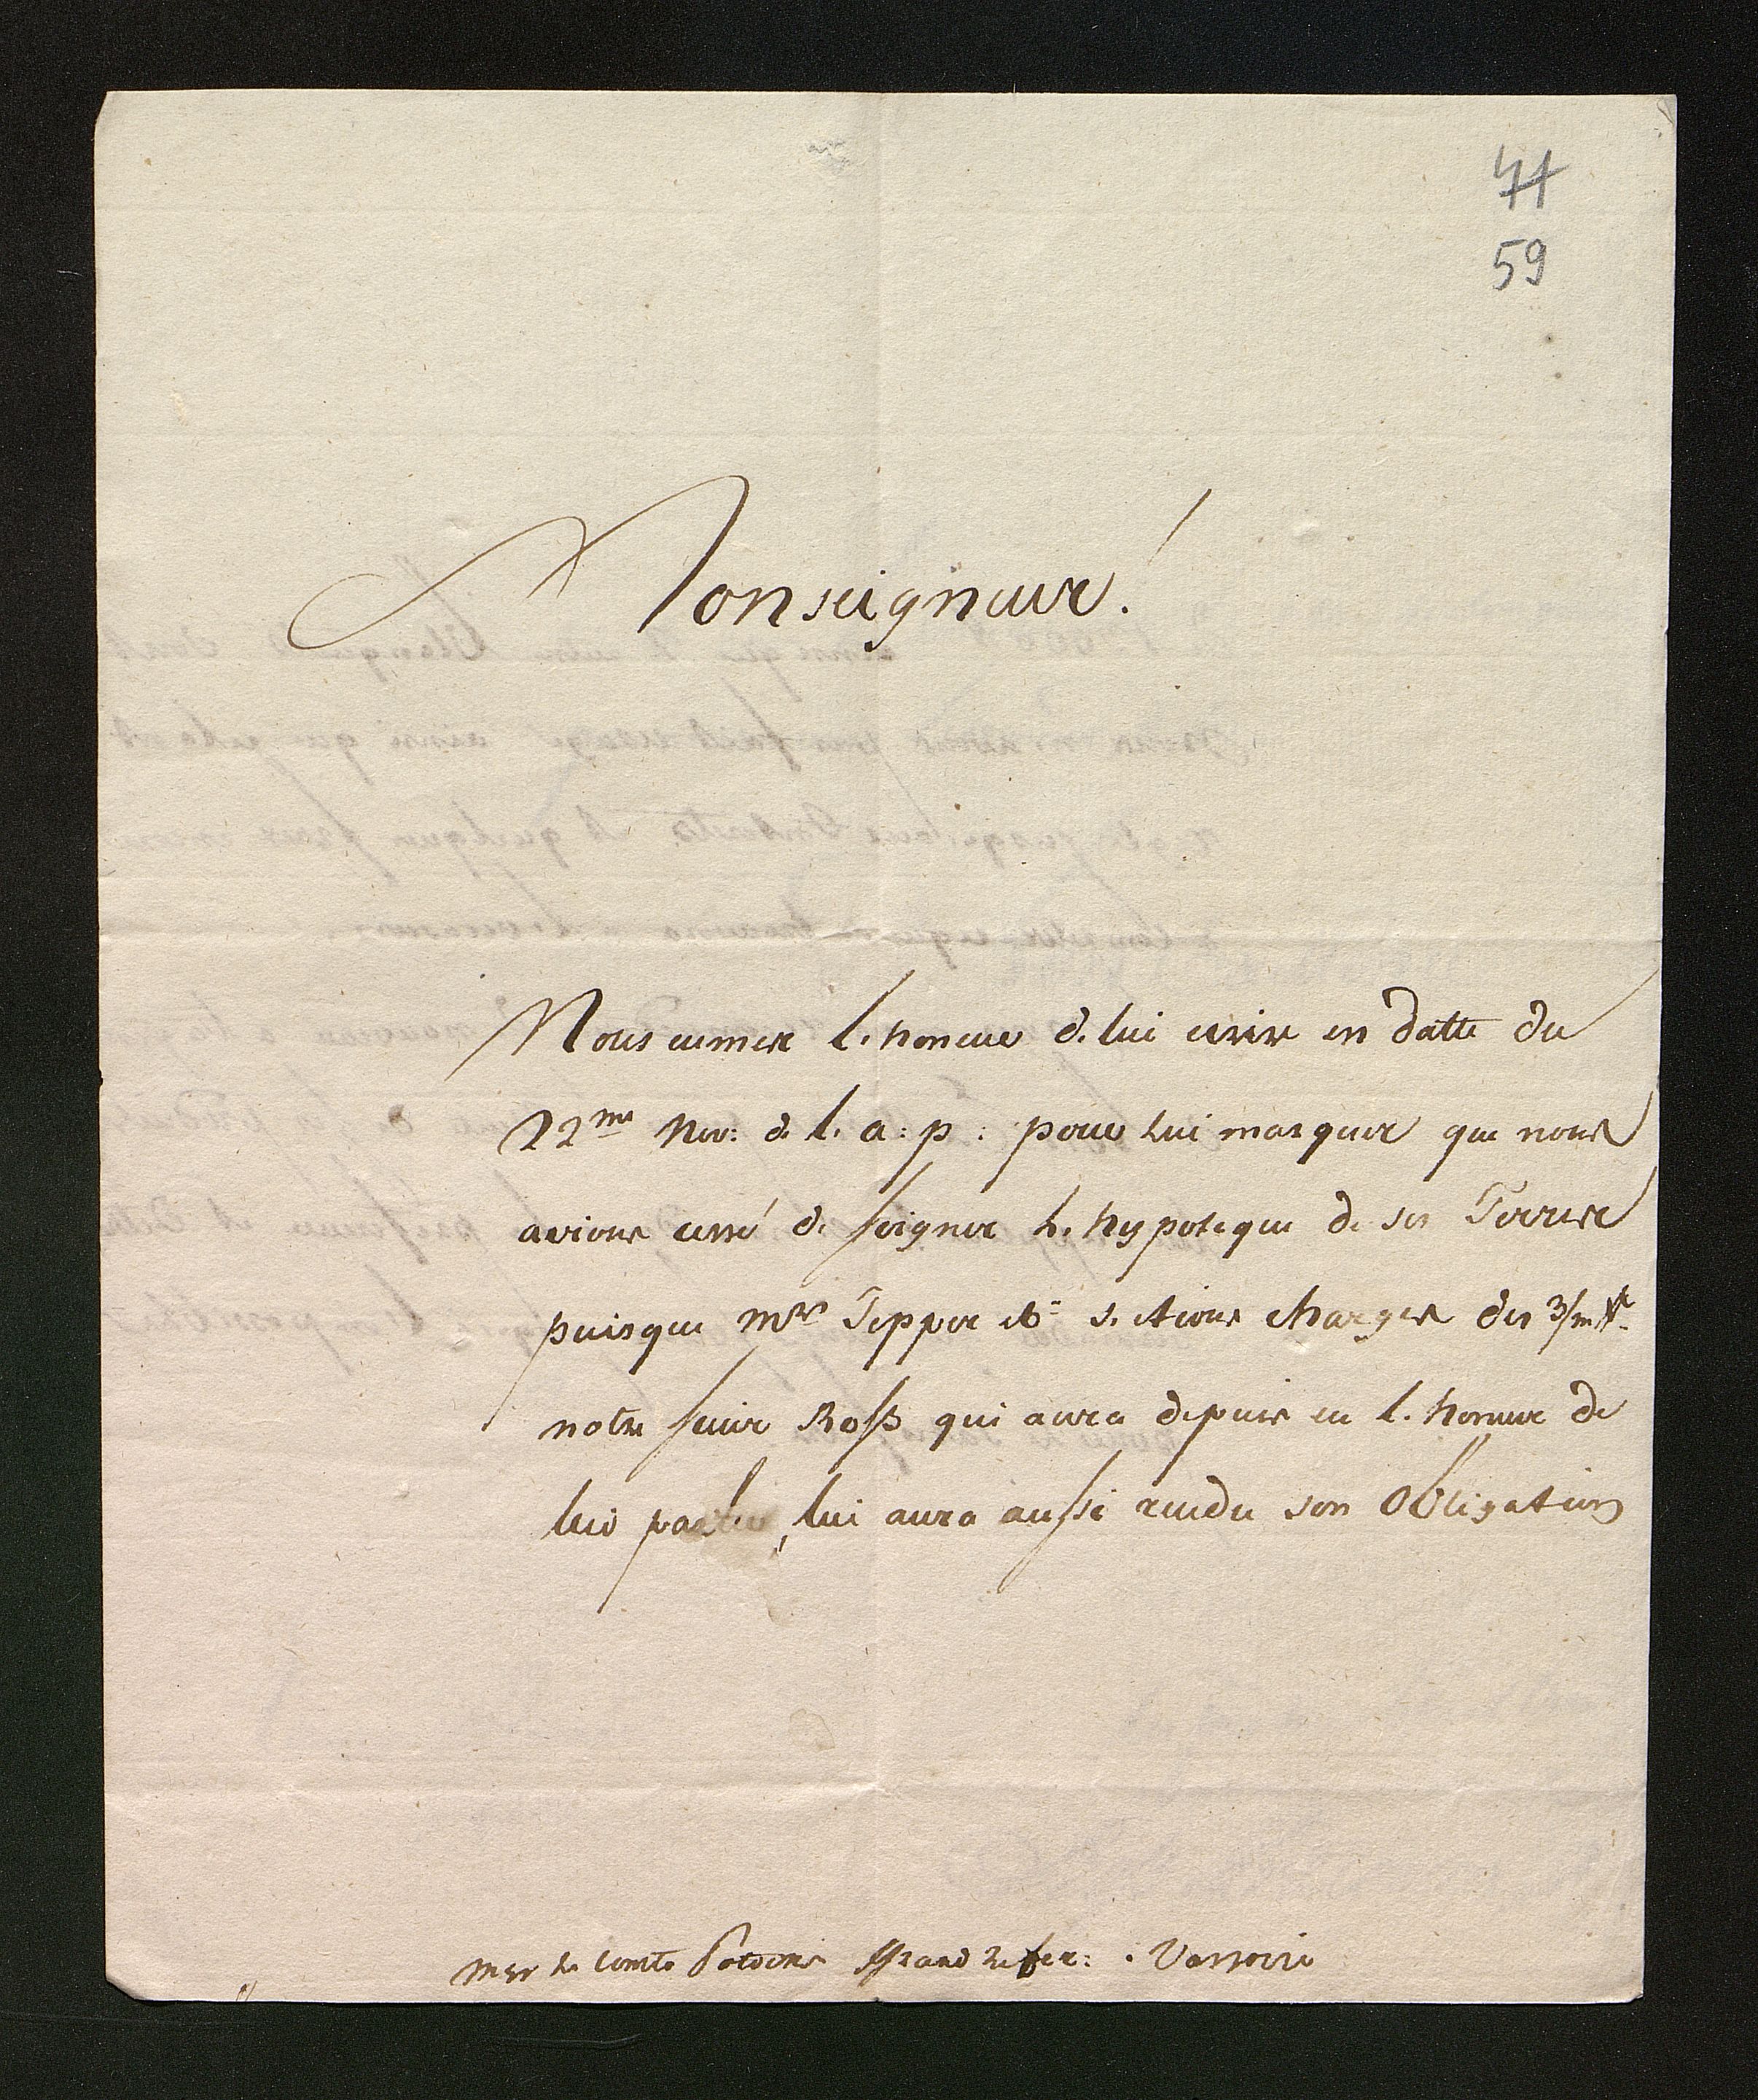 41
59
Monseigneur!
Nous eumes l. honeur d. lui ecrire en datte du
22me Nov: d. l. a: p: pour lui marquer que nous
avions cessé de soigner l. hypoteque de ses Terres
puisque Mrs Tepper s. etions charges des 3/m #
notre sieur Ross qui aura depuis eu l. honeur de
lui parler, lui aura aussi rendu son Obligation
Mgr le Comte Potocki Grand Refer: . Varsovie